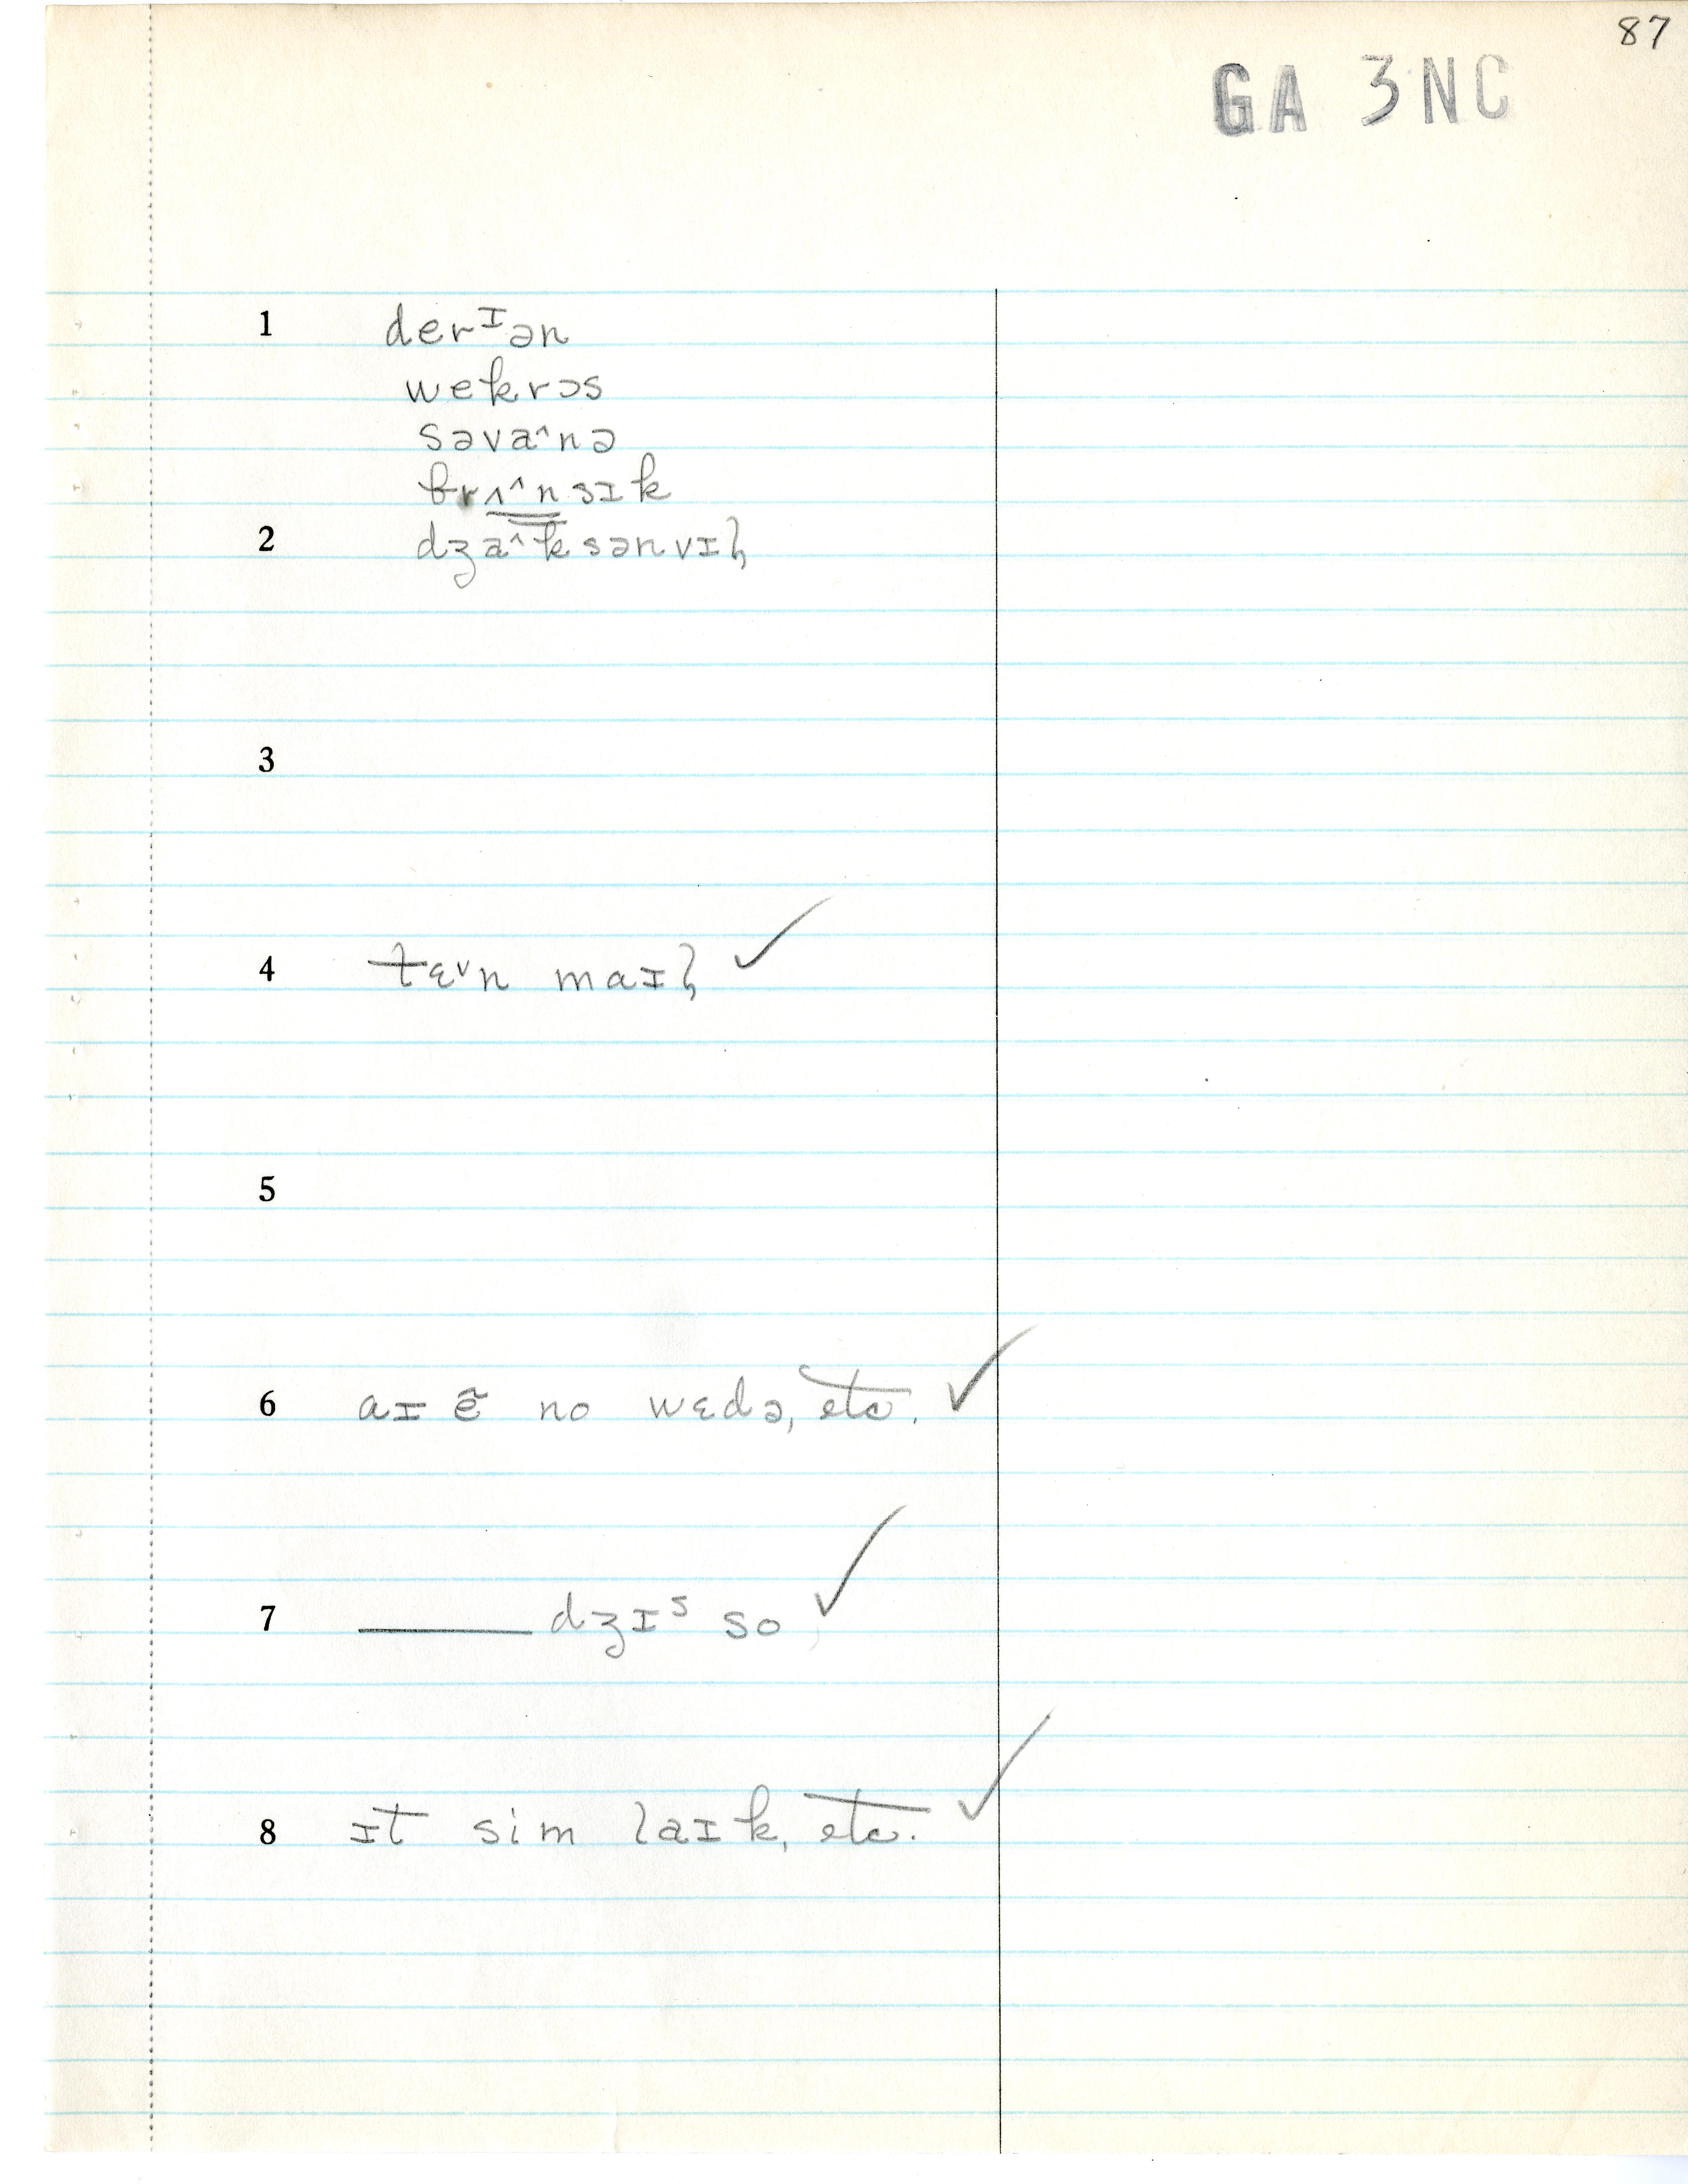 87
GA 3NC
1 derᴵən
wekrɔs
səva^nə
brʌ^nsɪk
2 dʒa^ksənvɪl̩
3
4 tɛᵛn maɪl̩ ✓
5
6 aɪ ẽ no wɛdə, etc. ✓
7 ——— dʒɪˢ so ✓
8 ɪt sim laɪk, etc. ✓